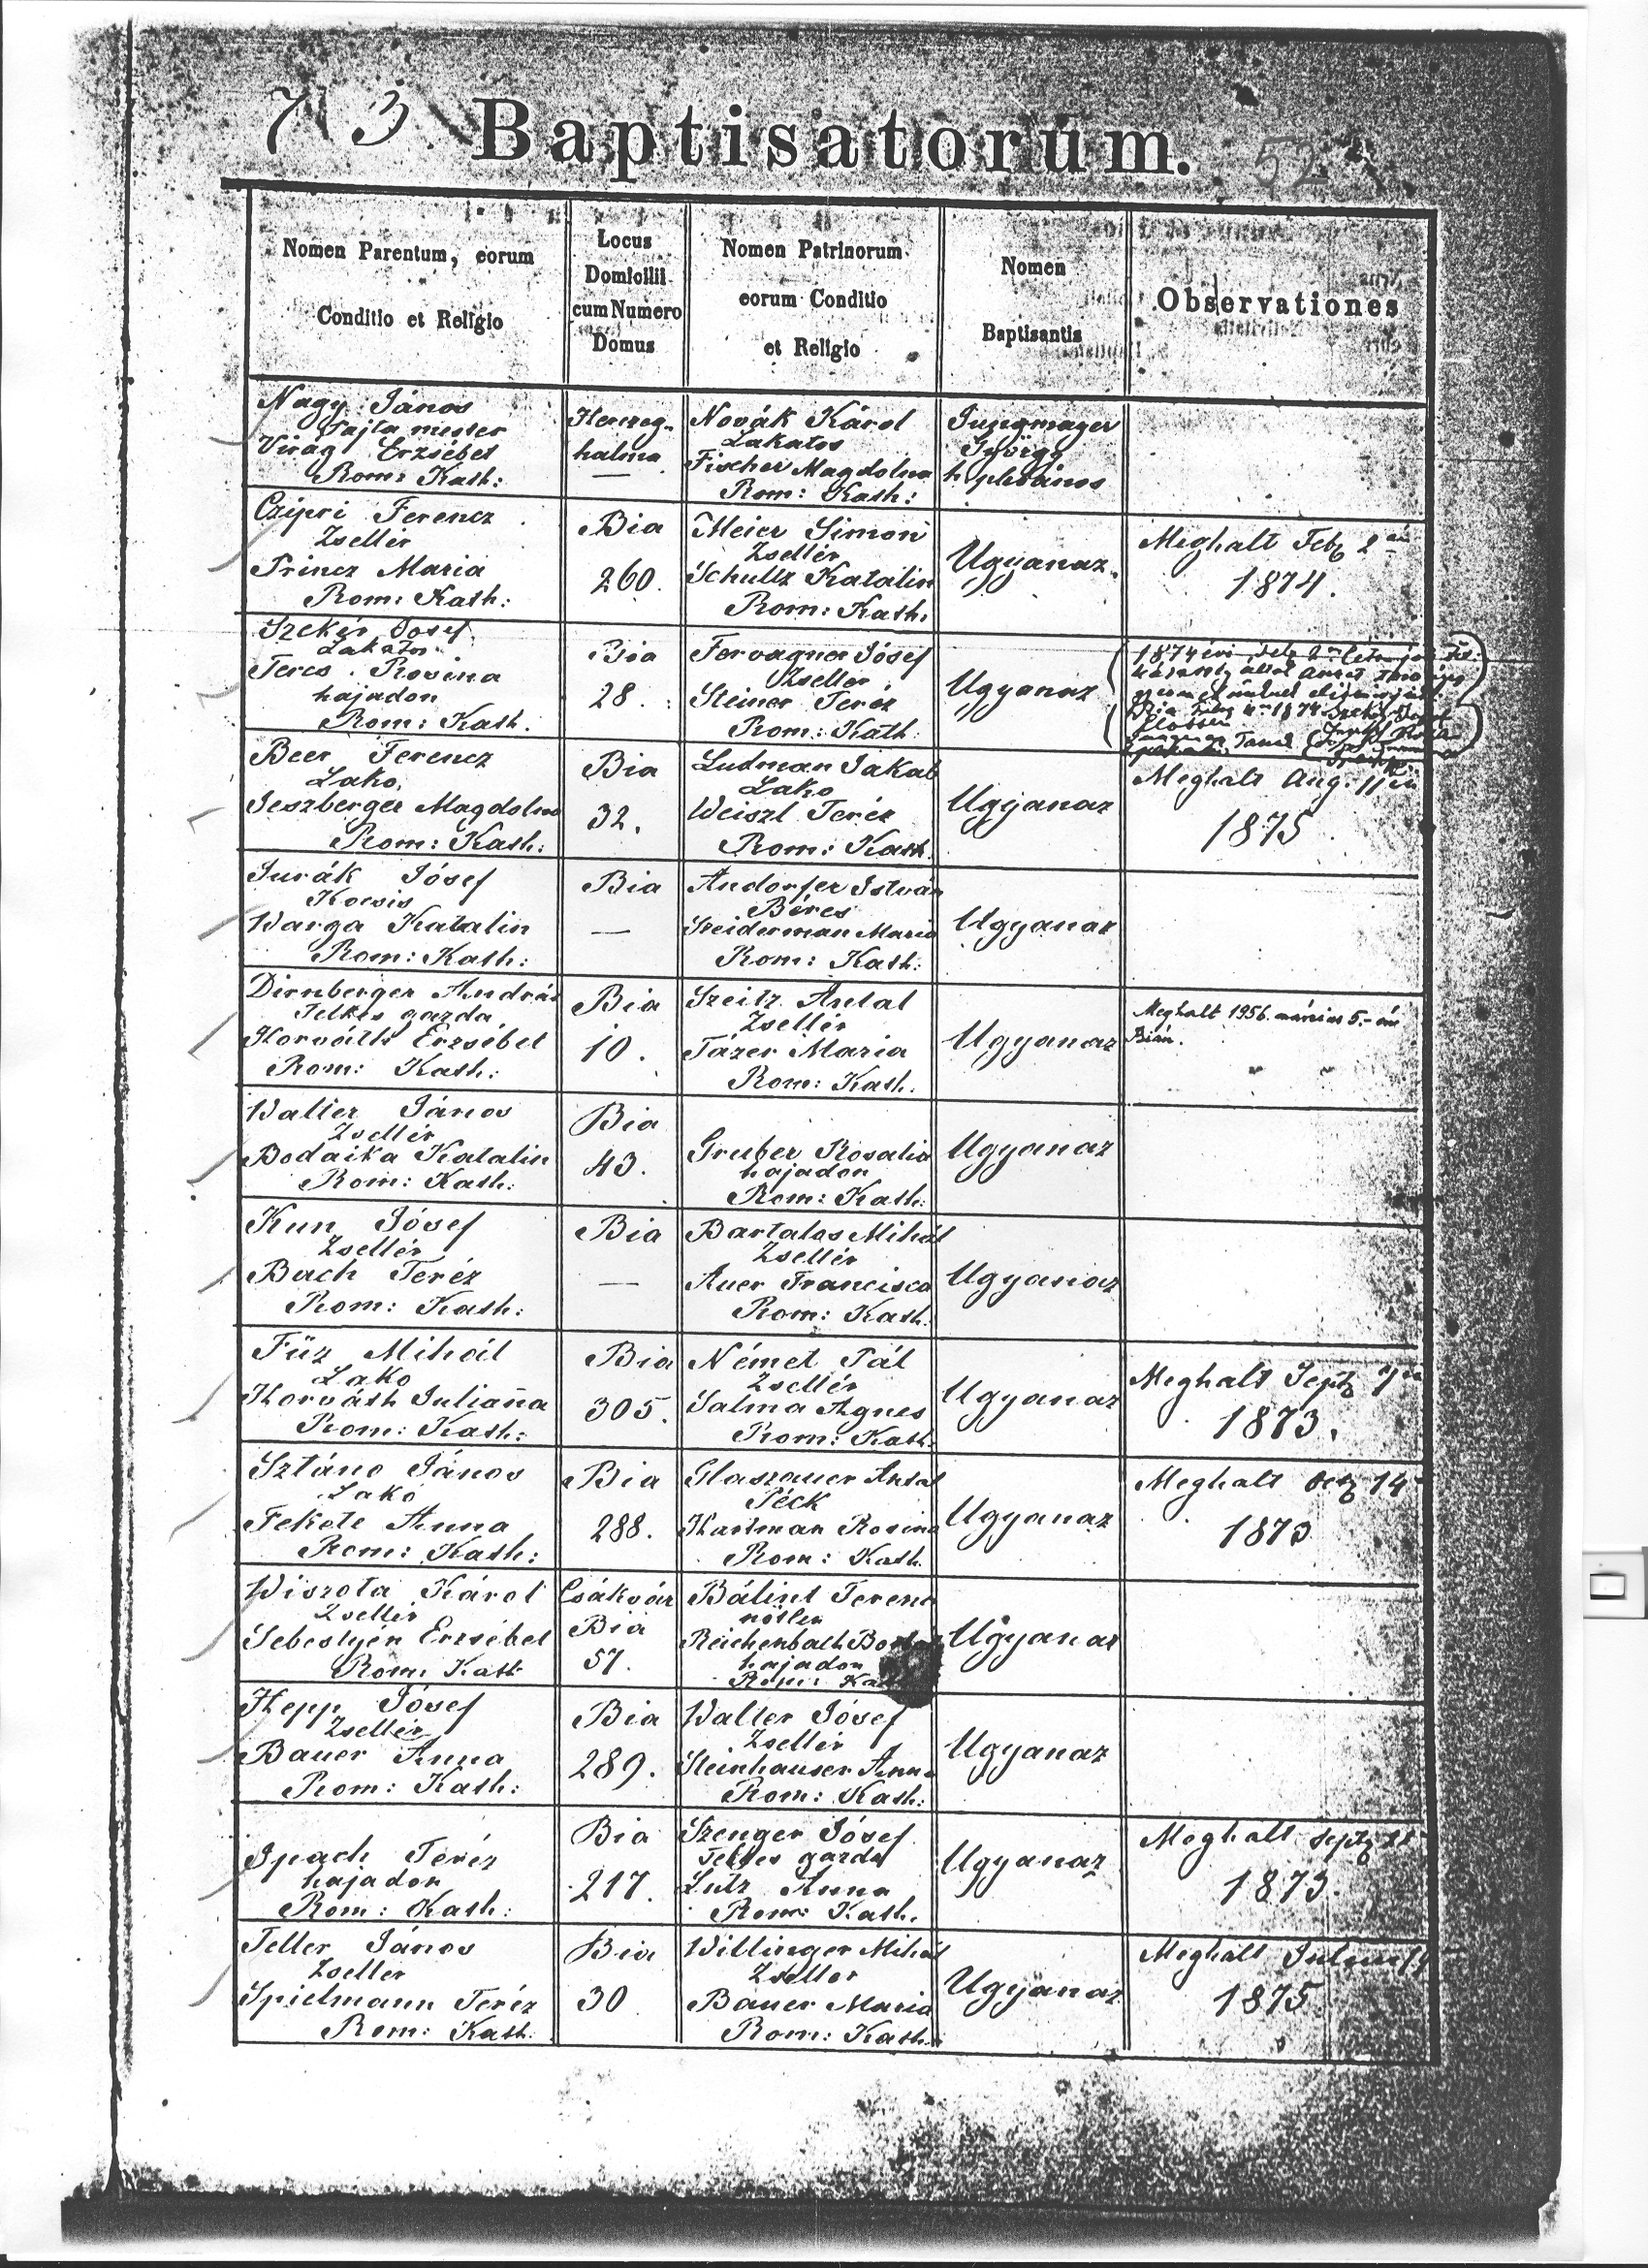 73 Baptisatorum. 52
Nomen Parentum, eorum
Conditio et Religio
Locus
Domicilii
cum Numero
Domus
Nomen Patrinorum
eorum Conditio
et Religio
Nomen
Baptisantis
Observationes
Nagy János
Virág Erzsébet
Rom: Kath:
Herczeg-
halma
—
Novák Károl
Lakatos
Fischer Magdolna
Rom: Kath:
Jungmayer
György
h. plebános
Czipri Ferencz
Zsellér
Princz Maria
Rom: Kath:
Bia
260.
Meier Simon
Zsellér
Schultz Katalin
Rom: Kath.
Ugyanaz
Meghalt Feb 2án
1874.
Szekér Josef
Lakatos
Teres Rosina
hajadon
Rom: Kath.
Bia
28.
Forvagner Jósef
Zseller
Steiner Teréz
Rom: Kath.
Ugyanaz
Beer Ferencz
Lako
Magdolna
Rom: Kath:
Bia
32.
Ludman Jakab
Lako
Weiszl Teréz
Rom: Kath.
Ugyanaz
Meghalt Aug. 11én
1875
Jurák Jósef
Kocsis
Warga Katalin
Rom: Kath:
Bia
—
Andorfer István
Béres
Szeiderman Maria
Rom: Kath:
Ugyanaz
Dirnberger András
Telkes gazda
Horváth Erzsébet
Rom: Kath:
Bia
10.
Szeitz Antal
Zsellér
Tázer Maria
Rom: Kath.
Ugyanaz
Meghalt 1956. március 5.-én
Bián.
Walter János
Zsellér
Bodaika Katalin
Rom: Kath:
Bia
43.
Gruber Rosalia
hajadon
Rom: Kath:
Ugyanaz
Kun Jósef
Zsellér
Bach Teréz
Rom: Kath:
Bia
—
Bartalos Mihál
Zsellér
Auer Francisca
Rom: Kath.
Ugyanaz
Füz Mihál
Lako
Horváth Julianna
Rom: Kath:
Bia
305.
Német Pál
Zsellér
Salma Agnes
Rom: Kath.
Ugyanaz
Meghalt Sept 7én
1873.
Sztáno János
Lakó
Fekete Anna
Rom: Kath:
Bia
288.
Glaszauer Antal
Péck
Hartman Rosina
Rom: Kath.
Ugyanaz
Meghalt 14
1873
Wiszota Károl
Zsellér
Sebestyén Erzsébet
Rom: Kath
Csákvár
Bia
57.
Bálint Ferenc
nőtlen
Reichenbach
hajadon
Rom: Ka
Ugyanaz
Hepp Jósef
Zsellér
Bauer Anna
Rom: Kath:
Bia
289.
Walter Jósef
Zsellér
Steinhauser Anna
Rom: Kath:
Ugyanaz
Spach Teréz
hajadon
Rom: Kath:
Bia
217.
Szenger Jósef
Telkes gazda
Lutz Anna
Rom: Kath.
Ugyanaz
Meghalt Sept
1873.
Teller János
Zseller
Spielmann Teréz
Rom: Kath:
Bia
30
Willinger Mihál
Zseller
Bauer Maria
Rom: Kath:
Ugyanaz
Meghalt
1875